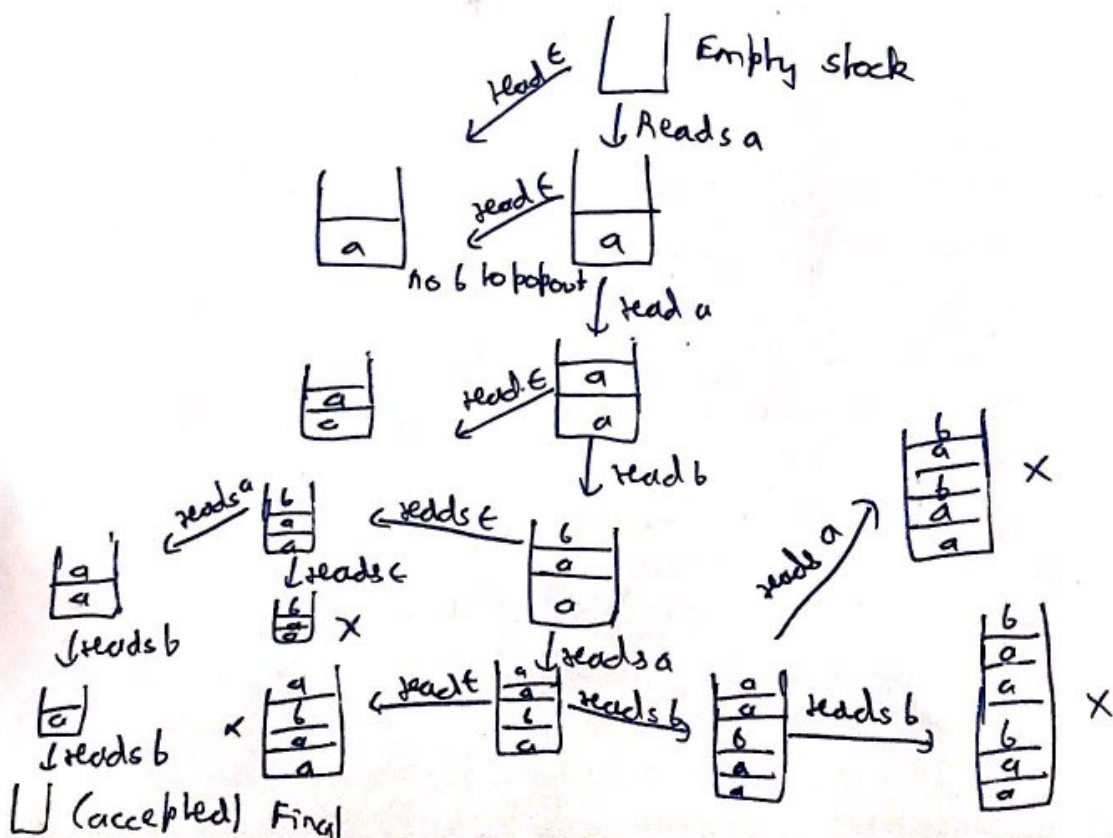 Empty stack
read ε
Reads a
read ε
a
a
no b to popout
read a
a
a
read ε
a
a
read b
b
a
b
a
a
X
reads a
b
a
a
reads ε
b
a
a
reads a
a
a
reads ε
b
a
a
X
reads b
reads a
b
a
a
b
a
a
X
a
a
b
a
read ε
a
b
a
a
x
reads b
a
a
b
a
a
reads b
a
reads b
(accepted) Final